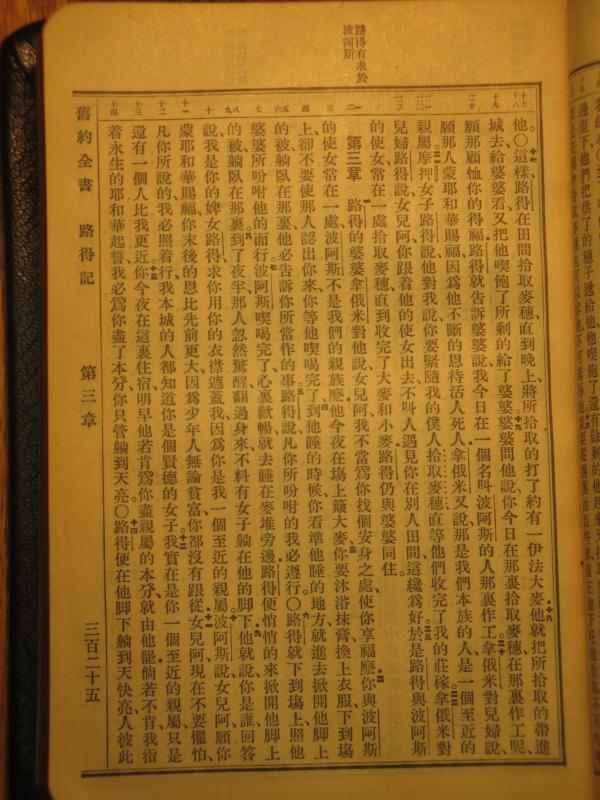 路得有求於
波阿斯
他○這樣路得在田間拾取麥穗直到晚上、將所拾取的打了約有一伊法大麥他就把所拾取的帶進
城去給婆婆看又把他喫飽了所剩的給了婆婆婆婆問他說你今日在那裏拾取麥穗在那裏作工呢、
願那顧恤你的得福路得就告訴婆婆說我今日在一個名叫波阿斯的人那裏作工拿俄米對兒婦說、
願那人蒙耶和華賜福因爲他不斷的恩待活人死人拿俄米又說那是我們本族的人是一個至近的
親屬摩押女子路得說他對我說你要緊隨我的僕人拾取麥穗直等他們收完了我的莊稼拿俄米對
兒婦路得說女兒阿你跟着他的使女出去不叫人遇見你在別人田間這纔爲好於是路得與波阿斯
的使女常在一處拾取麥穗直到收完了大麥和小麥路得仍與婆婆同住。
第三章 路得的婆婆拿俄米對他說女兒阿我不當爲你找個安身之處、使你享福麼你與波阿斯
的使女常在一處波阿斯不是我們的親族麼他今夜在塲上簸大麥你要沐浴抹膏換上衣服下到塲
上、卻不要使那人認出你來你等他喫喝完了到他睡的時候你看準他睡的地方就進去掀開他脚上
的被躺臥在那裏他必告訴你所當作的事路得說凡你所吩咐的我必遵行○路得就下到塲上照他
婆婆所吩咐他的而行波阿斯喫喝完了心裏歡暢就去睡在麥堆旁邊路得便悄悄的來掀開他脚上
的被躺臥在那裏到了夜半那人忽然驚醒翻過身來不料有女子躺在他的脚下他就說你是誰回答
說我是你的婢女路得求你用你的衣襟遮蓋我因爲你是我一個至近的親屬波阿斯說女兒阿願你
蒙耶和華賜福你末後的恩比先前更大因爲少年人無論貧富你都沒有跟從女兒阿現在不要懼怕、
凡你所說的我必照着行我本城的人都知道你是個賢德的女子我實在是你一個至近的親屬只是
還有一個人比我更近你今夜在這裏住宿明早他若肯爲你盡親屬的本分就由他罷倘若不肯我指
着永生的耶和華起誓我必爲你盡了本分你只管躺到天亮○路得便在他脚下躺到天快亮人彼此
舊約全書 路得記 第三章 三百二十五